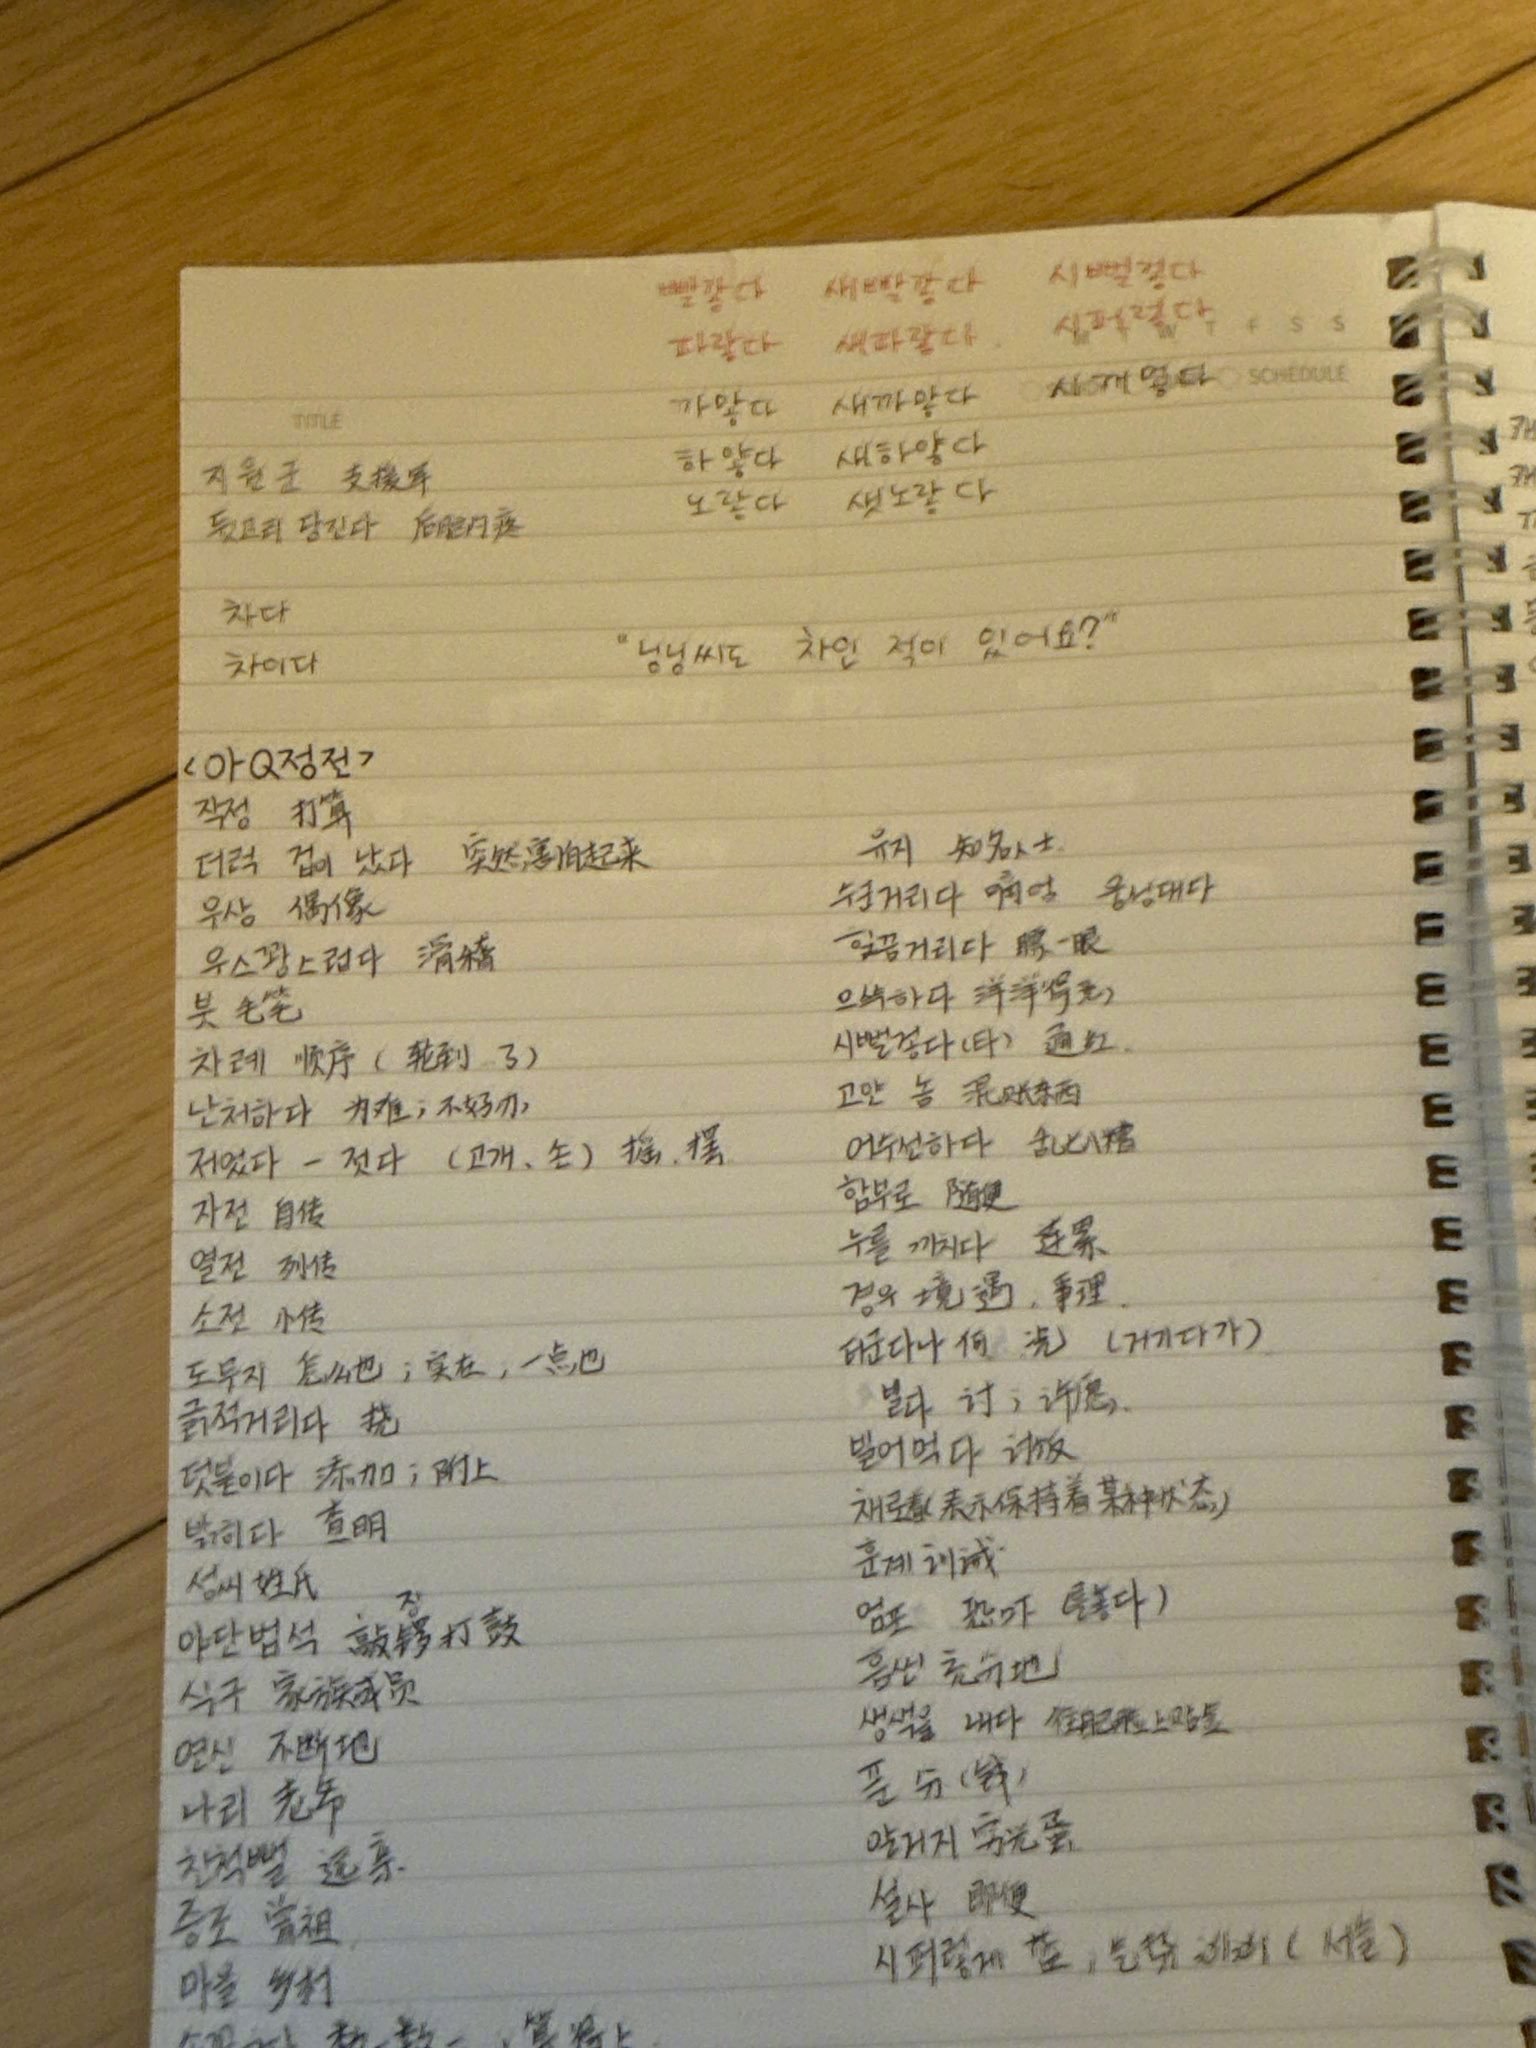 빨갛다 새빨갛다 시뻘겋다
파랗다 새파랗다 시퍼렇다 T F S S
까맣다 새까맣다 시꺼멓다 SCHEDULE
TITLE
하얗다 새하얗다
지원군 支援军
노랗다 샛노랗다
뒷고리 당긴다
차다
차이다 "닝닝씨도 차인 적이 있어요?"
<아Q정전>
작정 打算
더럭 겁이 났다 突然害怕起来 유지 知名人士
우상 偶像 수군거리다 웅성대다
우스꽝스럽다 滑稽 힐끔거리다 瞟一眼
붓 毛笔 으쓱하다 洋洋得意
차례 顺序 (轮到 了) 시뻘겋다(타) 通红
난처하다 为难; 不好办 고얀 놈 混账东西
저었다 - 젓다 (고개、손) 摇、摆 어수선하다 乱七八糟
자전 自传 함부로 随便
열전 列传 누를 끼치다 连累
소전 小传 경우 境遇、事理
도무지 怎么也; 实在; 一点也 더군다나 何况 (거기다가)
긁적거리다 挠 빌다 讨; 许愿
덧붙이다 添加; 附上 빌어먹다 讨饭
밝히다 查明 채로 (表示保持着某种状态)
성씨 姓氏 훈계 训诫
야단법석 敲锣打鼓 엄포 恐吓 (놓다)
식구 家族成员 흠씬 充分地
연신 不断地 생색을 내다
나리 老爷 푼 分(钱)
친척뻘 远亲 알거지 穷光蛋
증조 曾祖 설사 即便
마을 乡村 시퍼렇게 (서슬)